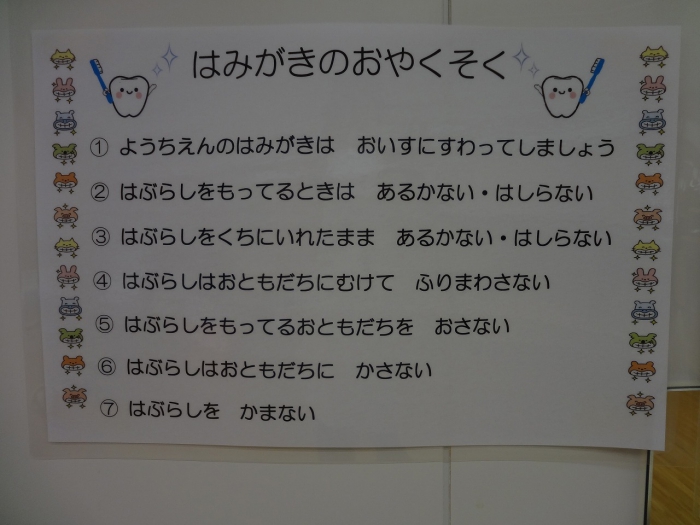 はみがきのおやくそく
① ようちえんのはみがきは　おいすにすわってしましょう
② はぶらしをもってるときは　あるかない・はしらない
③ はぶらしをくちにいれたまま　あるかない・はしらない
④ はぶらしはおともだちにむけて　ふりまわさない
⑤ はぶらしをもってるおともだちを　おさない
⑥ はぶらしはおともだちに　かさない
⑦ はぶらしを　かまない